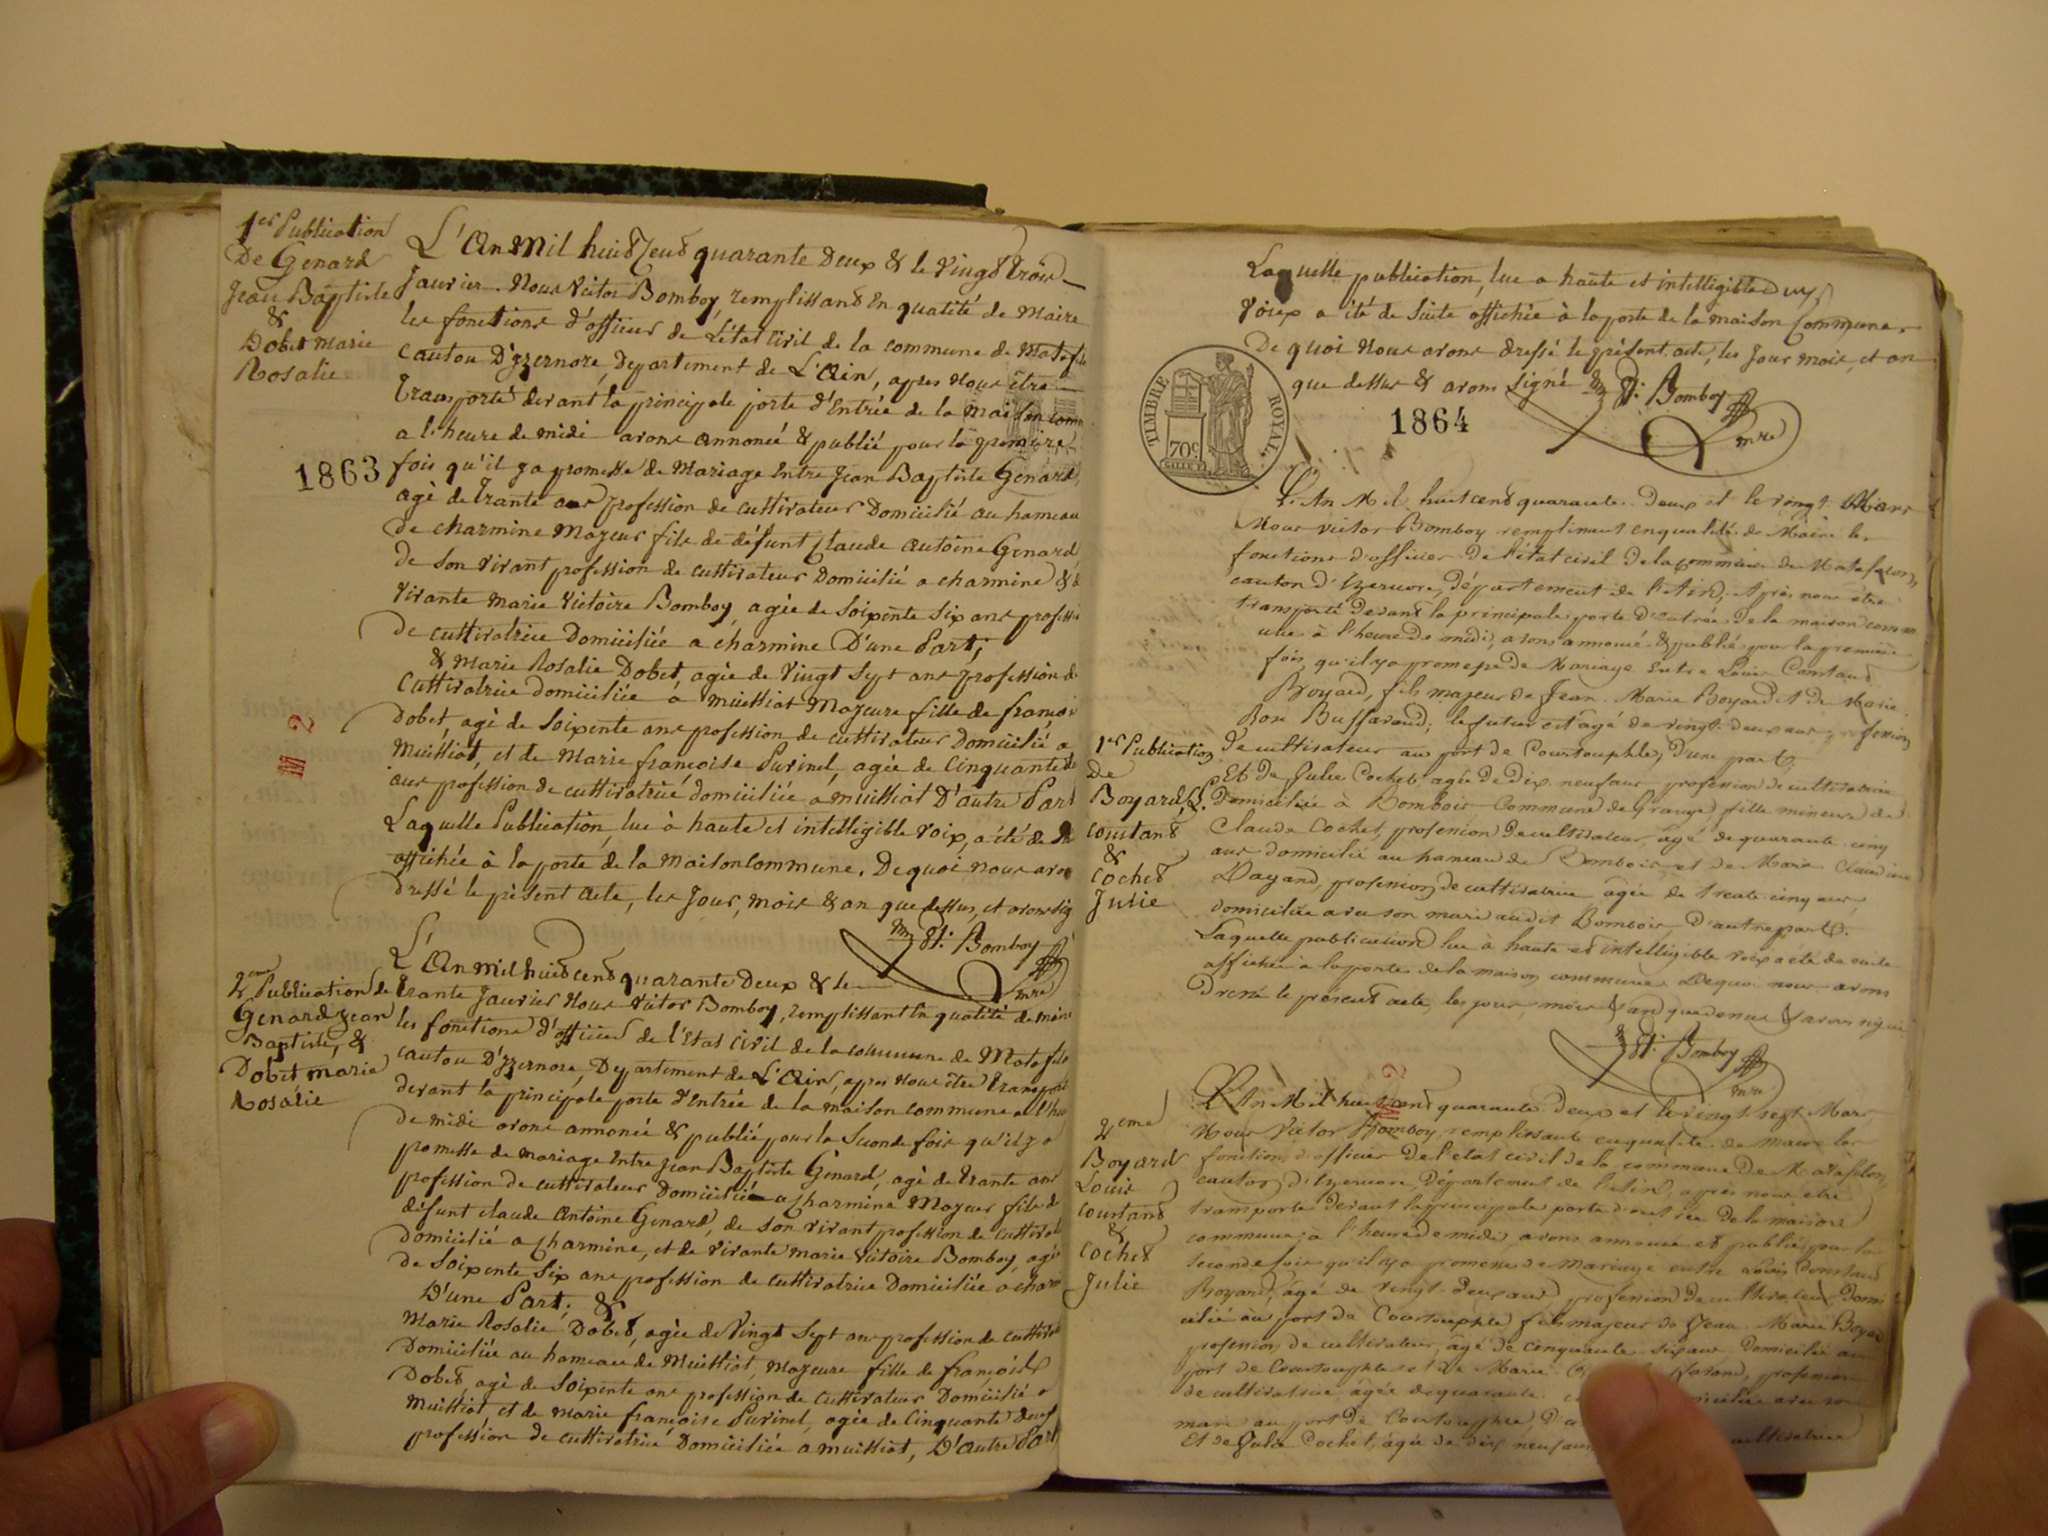 1er Publication
De Genard
Jean Baptiste
&
Dobet marie
Rosalie
L'An Mil huit Cent quarante Deux & le Vingt trois
Janvier. Nous Victor Bomboy, remplissant En qualité de Maire
les fonctions d'officier de L'état Civil de la commune de Matafelon
canton D'yzernore, Departement de L'Ain, apres Nous être
transporté devant la principale porte d'Entrée de la maison com
a l'heure de midi avons annoncé & publié pour la premiere
1863
fois qu'il y a promesse de Mariage Entre Jean Baptiste Genard,
agé de trante ans profession de cultivateur Domicilié au hameau
de charmine Majeur fils de défunt Claude Antoine Genard
de son vivant profession de cultivateur Domicilié a charmine & de
Vivante Marie Victoire Bomboy, agée de Soixente Six ans professi
de cultivatrice Domiciliée a charmine D'une Part;
& Marie Rosalie Dobet, agée de Vingt Sept ans profession de
Cultivatrice domiciliée a muissiat Majeure fille de françois
Dobet, agé de Soixente ans profession de cultivateur Domicilié a
Muissiat, et de Marie françoise Purinel, agée de Cinquante
ans profession de cultivatrice domiciliée a muissiat D'autre Part
Laquelle Publication, lue à haute et intelligible voix, a été de
affichée à la porte de la Maison Commune. De quoi nous avon
dressé le présent acte, les Jour, mois & an que dessus, et avons sig
Vr. Bomboy
mre
M 2
2eme Publication de
Genard Jean
Baptiste, &
Dobet marie
Rosalie
L'An mil huit cent quarante Deux & le
trante Janvier Nous Victor Bomboy, remplissant En qualité de maire
les fonctions d'officier de l'état Civil de la commune de Matafelon
canton D'yzernore, Departement de L'Ain, apres Nous être transporté
devant la principale porte d'Entrée de la maison commune a l'heu
de midi avons annoncé & publié pour la Seconde fois qu'il y a
promesse de mariage Entre Jean Baptiste Génard, agé de trante ans
profession de cultivateur Domicilié a charmine Mayeur fils de
défunt claude Antoine Genard, de son vivant profession de Cultivat
domicilié a charmine, et de vivante marie Victoire Bomboy, agée
de Soixente Six ans profession de cultivatrice Domiciliée a char
D'une Part; &
Marie Rosalie Dobet, agée de Vingt Sept ans profession de cultivat
Domiciliée au hameau de Muissiat, Majeure fille de françois
Dobet agé de Soixente ans profession de Cultivateur Domicilié a
Muissiat et de Marie françoise Purinel, agée de Cinquante deux
profession de cultivatrice Domiciliée a muissiat, D'Autre Part
Laquelle publication, lue a haute et intelligible
Voix a été de Suite affichée à la porte de la maison Commune.
De quoi Nous avons dressé le présent acte, les Jour mois, et an
que dessus & avons signé Vr. Bomboy
mre
TIMBRE ROYAL
70c
1864
L'An Mil huit cent quarante Deux et le vingt Mars
Nous Victor Bomboy remplissant en qualité de Maire les
fonctions d'officier de l'état civil de la commune de Matafelon,
canton d'Yzernore, Département de l'Ain, Après nous être
transporté devant la principale porte d'entrée de la maison comm
une à l'heure de midi, avons annoncé & publié pour la premiere
fois, qu'il y a promesse de Mariage Entre Louis Constand
Boyard, fils majeur de Jean Marie Boyard et de Marie
Rose Buffavand; le futur est agé de vingt deux ans profession
De cultivateur au port de Courtouphle, d'une part.
1er Publication
de
Boyard, L.
coustand
&
Cochet
Julie
Et De Julie Cochet agée de Dix neuf ans profession de cultivatrice
Domiciliée à Bombois Commune de Grange, fille mineure de
Claude Cochet, profession de cultivateur, agé de quarante cinq
ans domicilié au hameau de Bombois, et de Marie Claudine
Dayand, profession de cultivatrice agée de trente cinq ans
domiciliée avec son mari audit Bombois, D'autre part.
Laquelle publication lue à haute et intelligible voix a été de suite
affichée à la porte de la maison commune De quoi nous avons
Dressé le présent acte, les jour, mois & an que dessus & avons signé
Vr. Bomboy
mre
M 2
2eme
Boyard
Louis
Coustand
&
Cochet
Julie
L'An Mil huit cent quarante Deux et le vingt sept Mars
Nous Victor Bomboy, remplissant en qualité de Maire les
fonctions d'officier De l'état civil de la commune De Matafelon,
canton d'Yzernore, Département de l'Ain, après nous être
transporté devant la principale porte d'entrée De la maison
commune, à l'heure de midi, avons annoncé et publié pour la
seconde fois qu'il y a promesse de Mariage entre Louis Constand
Boyard, agé de vingt Deux ans profession De cultivateur, Domi
cilié au port de Courtouphle fils majeur de Jean Marie Boyar
profession de cultivateur, agé de cinquante six ans Domicilié au
port de Courtouphle et de Marie profession
de cultivatrice agée de quarante
mari au port de Courtouphle,
Et de Julie Cochet, agée de dix neuf ans cultivatrice